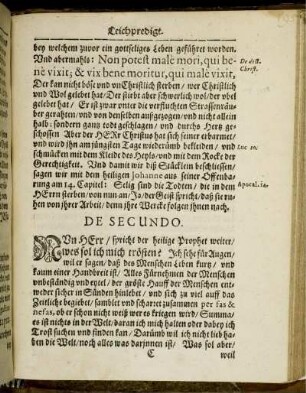 Leichpredigt.
bey welchem zuvor ein gottseliges Leben geführet worden.
Vnd abermahls: Non potest malè mori, qui be-
nè vixit; & vix benè moritur, qui malè vixit,
Der kan nicht böse vnd vnChristlich sterben / wer Christlich
vnd Wol gelebet hat: Der stirbt aber schwerlich wol / der vbel
gelebet hat / Er ist zwar vnter die verfluchten Strassenräu-
ber gerahten / vnd von denselben außgezogen / vnd nicht allein
halb / sondern gantz todt geschlagen / vnd durchs Hertz ge-
schossen Aber der HERr Christus hat sich seiner erbarmet /
vnd wird jhn am jüngsten Tage wiederumb bekleiden / vnd
schmücken mit dem Kleide des Heyls / vnd mit dem Rocke der
Gerechtigkeit. Vnd damit wir diß Stücklein beschliessen /
sagen wir mit dem heiligen Johanne aus seiner Offenba-
rung am 14. Capitel: Selig sind die Todten / die in dem
HErrn sterben / von nun an / Ja / der Geist spricht / daß sie ru-
hen von jhrer Arbeit / denn jhre Wercke folgen jhnen nach.
De disc.
Christ.
Luc 10.
Apocal. 14.
DE SECUNDO.
NVn HErr / spricht der heilige Prophet weiter /
wes sol ich mich trösten? Ich sehe für Augen /
wil er sagen / daß des Menschen Leben kurtz / vnd
kaum einer Handbreit ist / Alles Fürnehmen der Menschen
vnbeständig vnd eytel / der gröst Hauff der Menschen ent-
weder sicher in Sünden hinlebet / vnd sich zu viel auff das
Zeitliche begiebt / samblet vnd scharret zusammen per fas &
nefas, ob er schon nicht weiß wer es kriegen wird / Summa /
es ist nichts in der Welt / daran ich mich halten oder dabey ich
Trost suchen vnd finden kan / Darumb wil ich nicht lieb ha-
ben die Welt / noch alles was darjnnen ist / Was sol aber /
C
weil